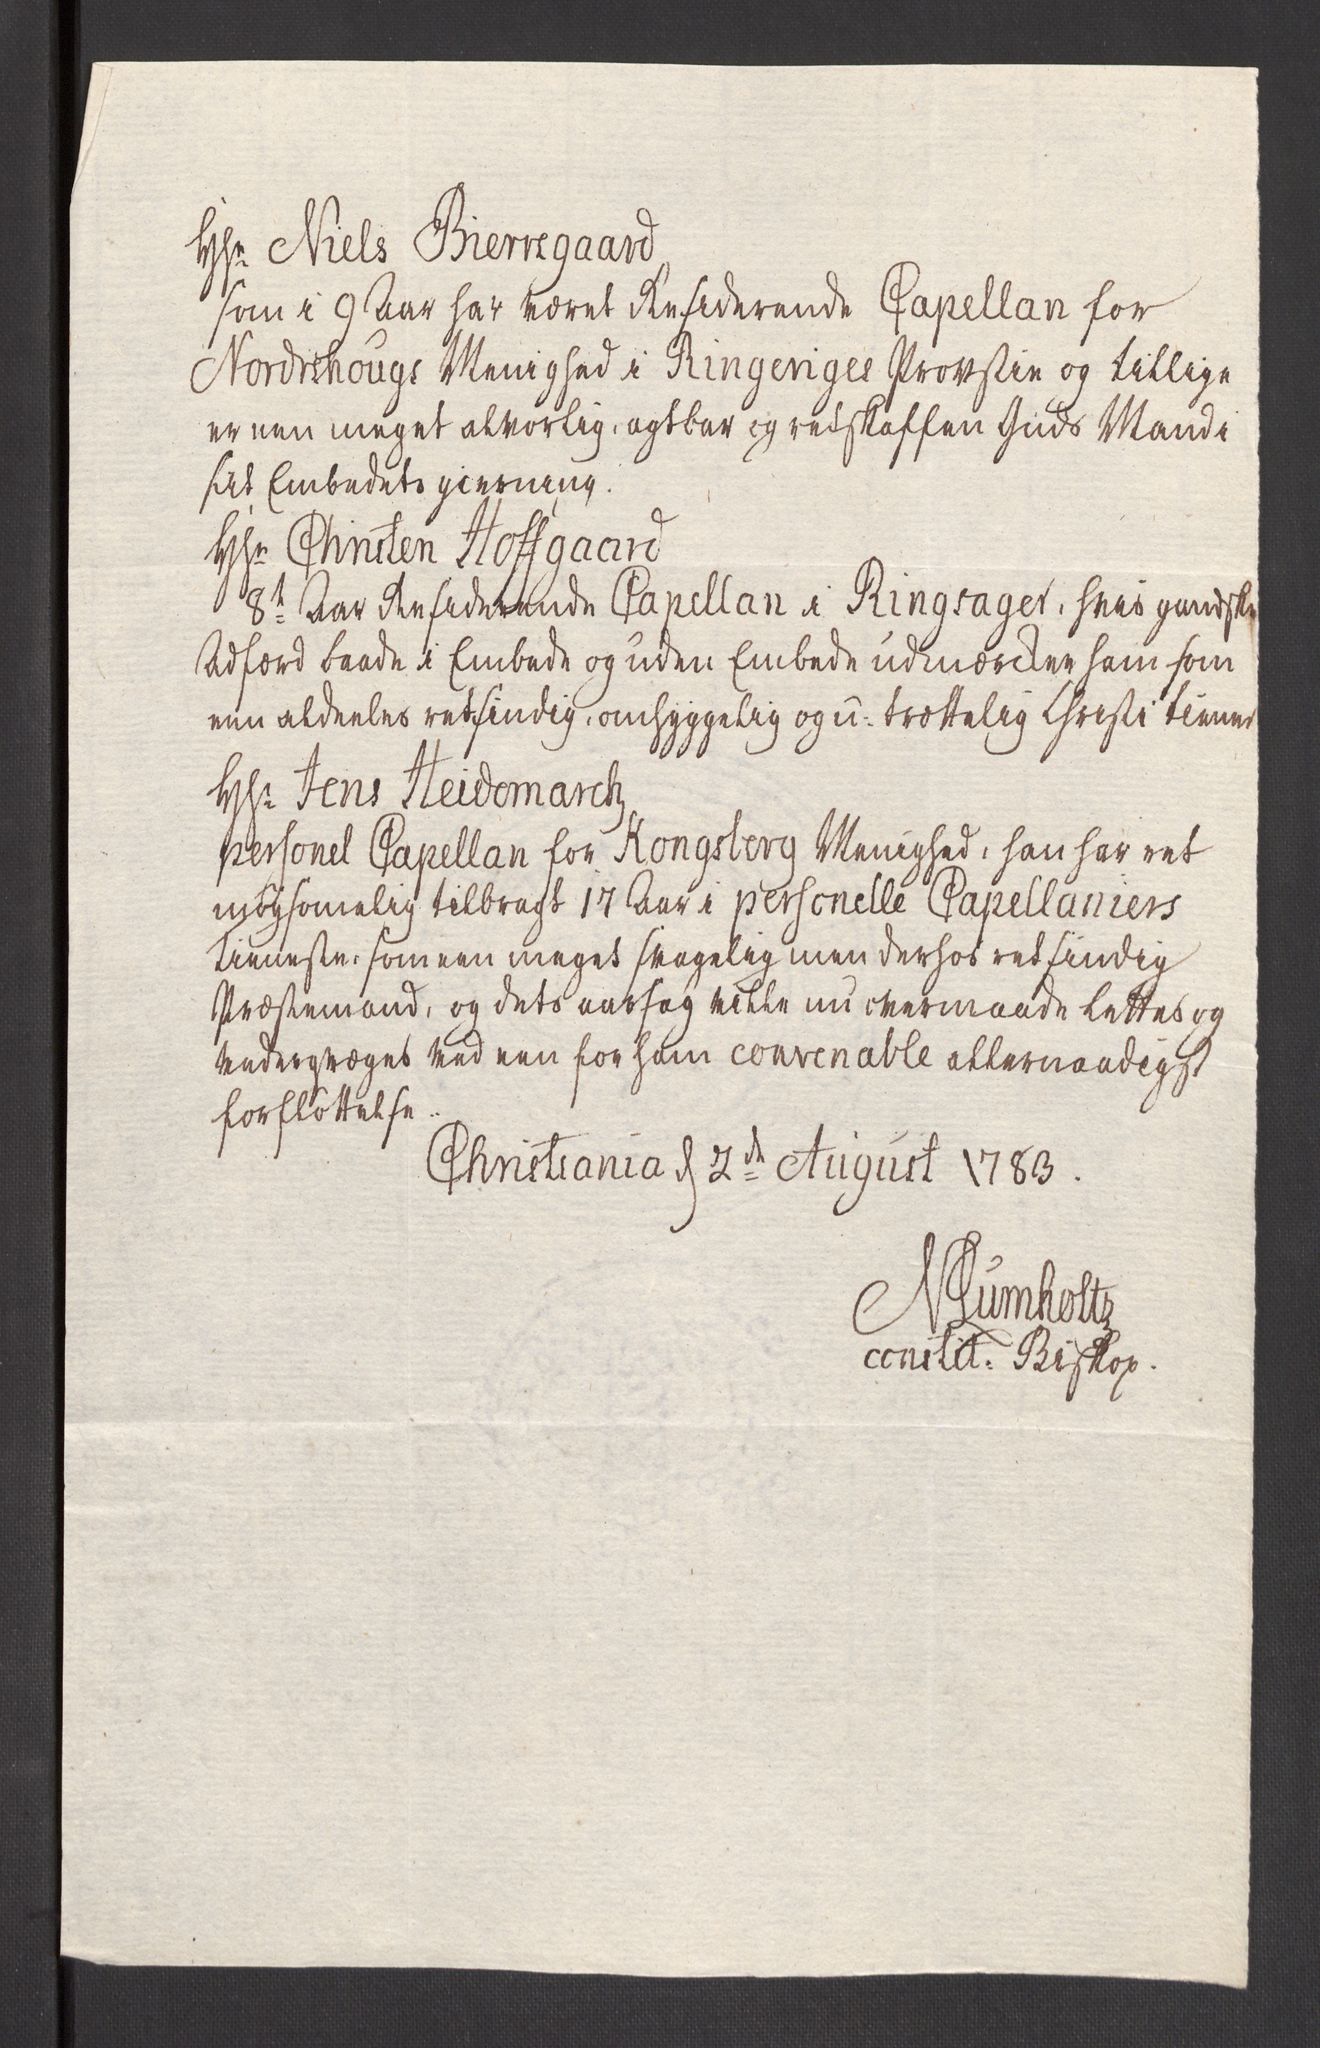 Hr. Niels Bierregaard
som i 9 Aar har været Residerende Capellan for
Norderhougs Menighed i Ringeriges Provstie og tillige
er een meget alvorlig, agtbar og redskaffen Guds Mand i
sit Embedets gierning.
Hr. Christen Hoffgaard
8t Aar Residerende Capellan i Ringsager, hvis gandske
Adfærd baade i Embede og uden Embede udmærcker ham som
een aldeeles retsindig, omhyggelig og u-trættelig Christi tiener
Hr. Jens Heidemarck
personel Capellan for Kongsberg Menighed, han har ret
møysomelig tilbragt 17 Aar i personelle Capellaniers
tieneste, som een meget svagelig men derhos retsindig
Præstemand, og dets aarsag ville nu overmaade lettes og
vedergvæges ved een for ham convenable allernaadigst
forfløttelse.
Christiania d 2de August 1783.
N Lumholtz
constit. Biskop.